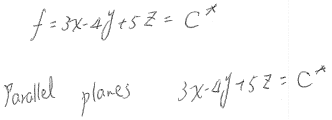 f = 3x-4y+5z = C*
Parallel planes 3x-4y+5z = C*